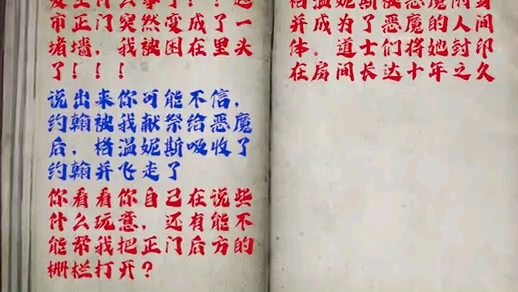 发生什么事了？？超
市正门突然变成了一
堵墙，我被困在里头
了！！！
说出来你可能不信，
约翰被我献祭给恶魔
后，格温妮斯吸收了
约翰并飞走了
你看看你自己在说些
什么玩意，还有能不
能帮我把正门后方的
栅栏打开？
格温妮斯被恶魔附身
并成为了恶魔的人间
体。道士们将她封印
在房间长达十年之久